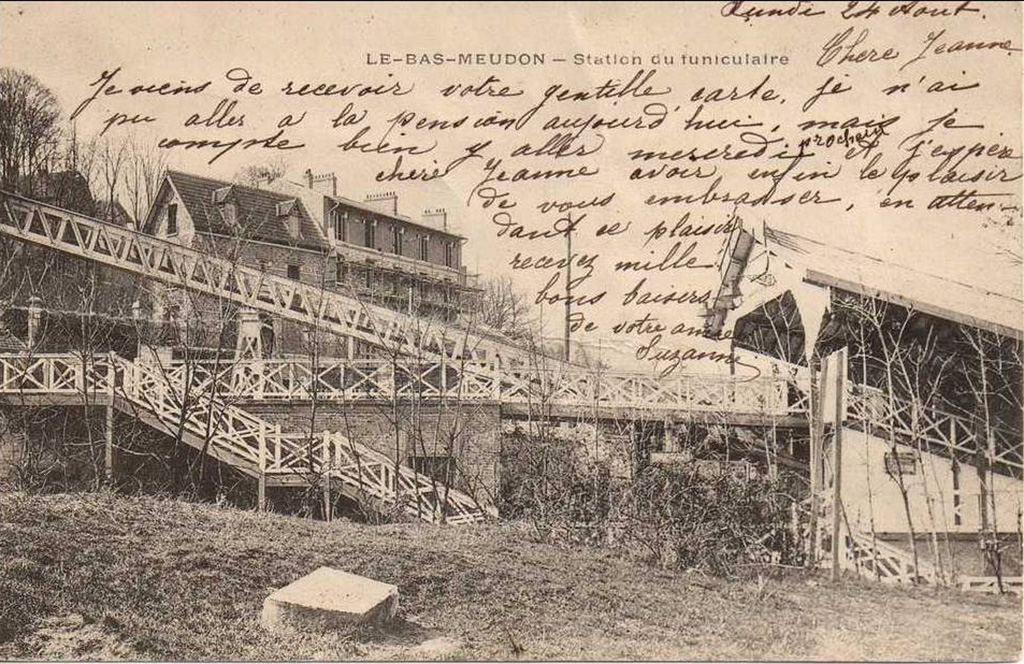 Lundi 24 Aout.
Chere Jeanne
LE-BAS-MEUDON — Station du funiculaire
Je viens de recevoir votre gentille carte, je n'ai
pu aller a la pension aujourd'hui, mais je
compte bien y aller mercredi prochain et j'espère
chère Jeanne avoir enfin le plaisir
de vous embrasser, en atten-
dant ce plaisir
recevez mille
bons baisers
de votre amie
Suzanne